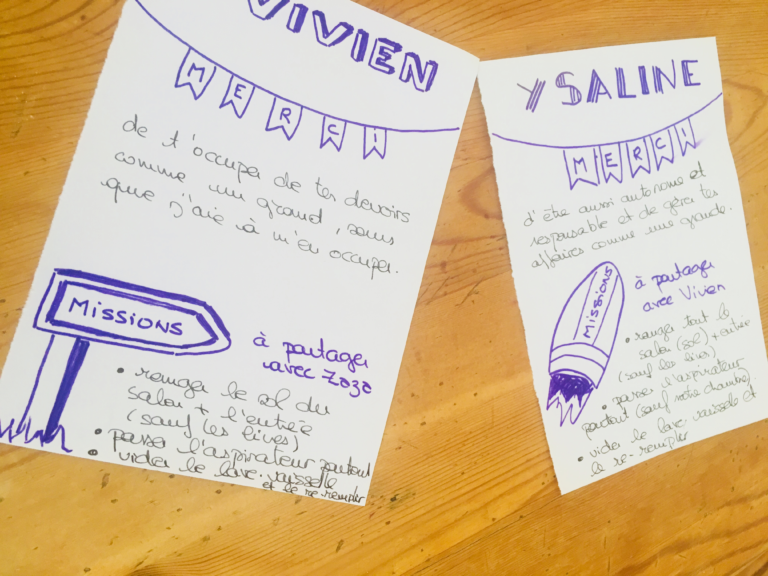 VIVIEN
MERCI
de t'occuper de tes devoirs
comme un grand, sans
que j'aie à m'en occuper.
MISSIONS
à partager
avec Zozo
• ranger le sol du
salon + l'entrée
(sauf les livres)
• passer l'aspirateur partout
• vider le lave-vaisselle
et le re-remplir
YSALINE
MERCI
d'être aussi autonome et
responsable et de gérer tes
affaires comme une grande.
MISSIONS
à partager
avec Vivien
• ranger tout le
salon (sol) + entrée
(sauf les livres)
• passer l'aspirateur
partout (sauf notre chambre)
• vider le lave-vaisselle et
le re-remplir